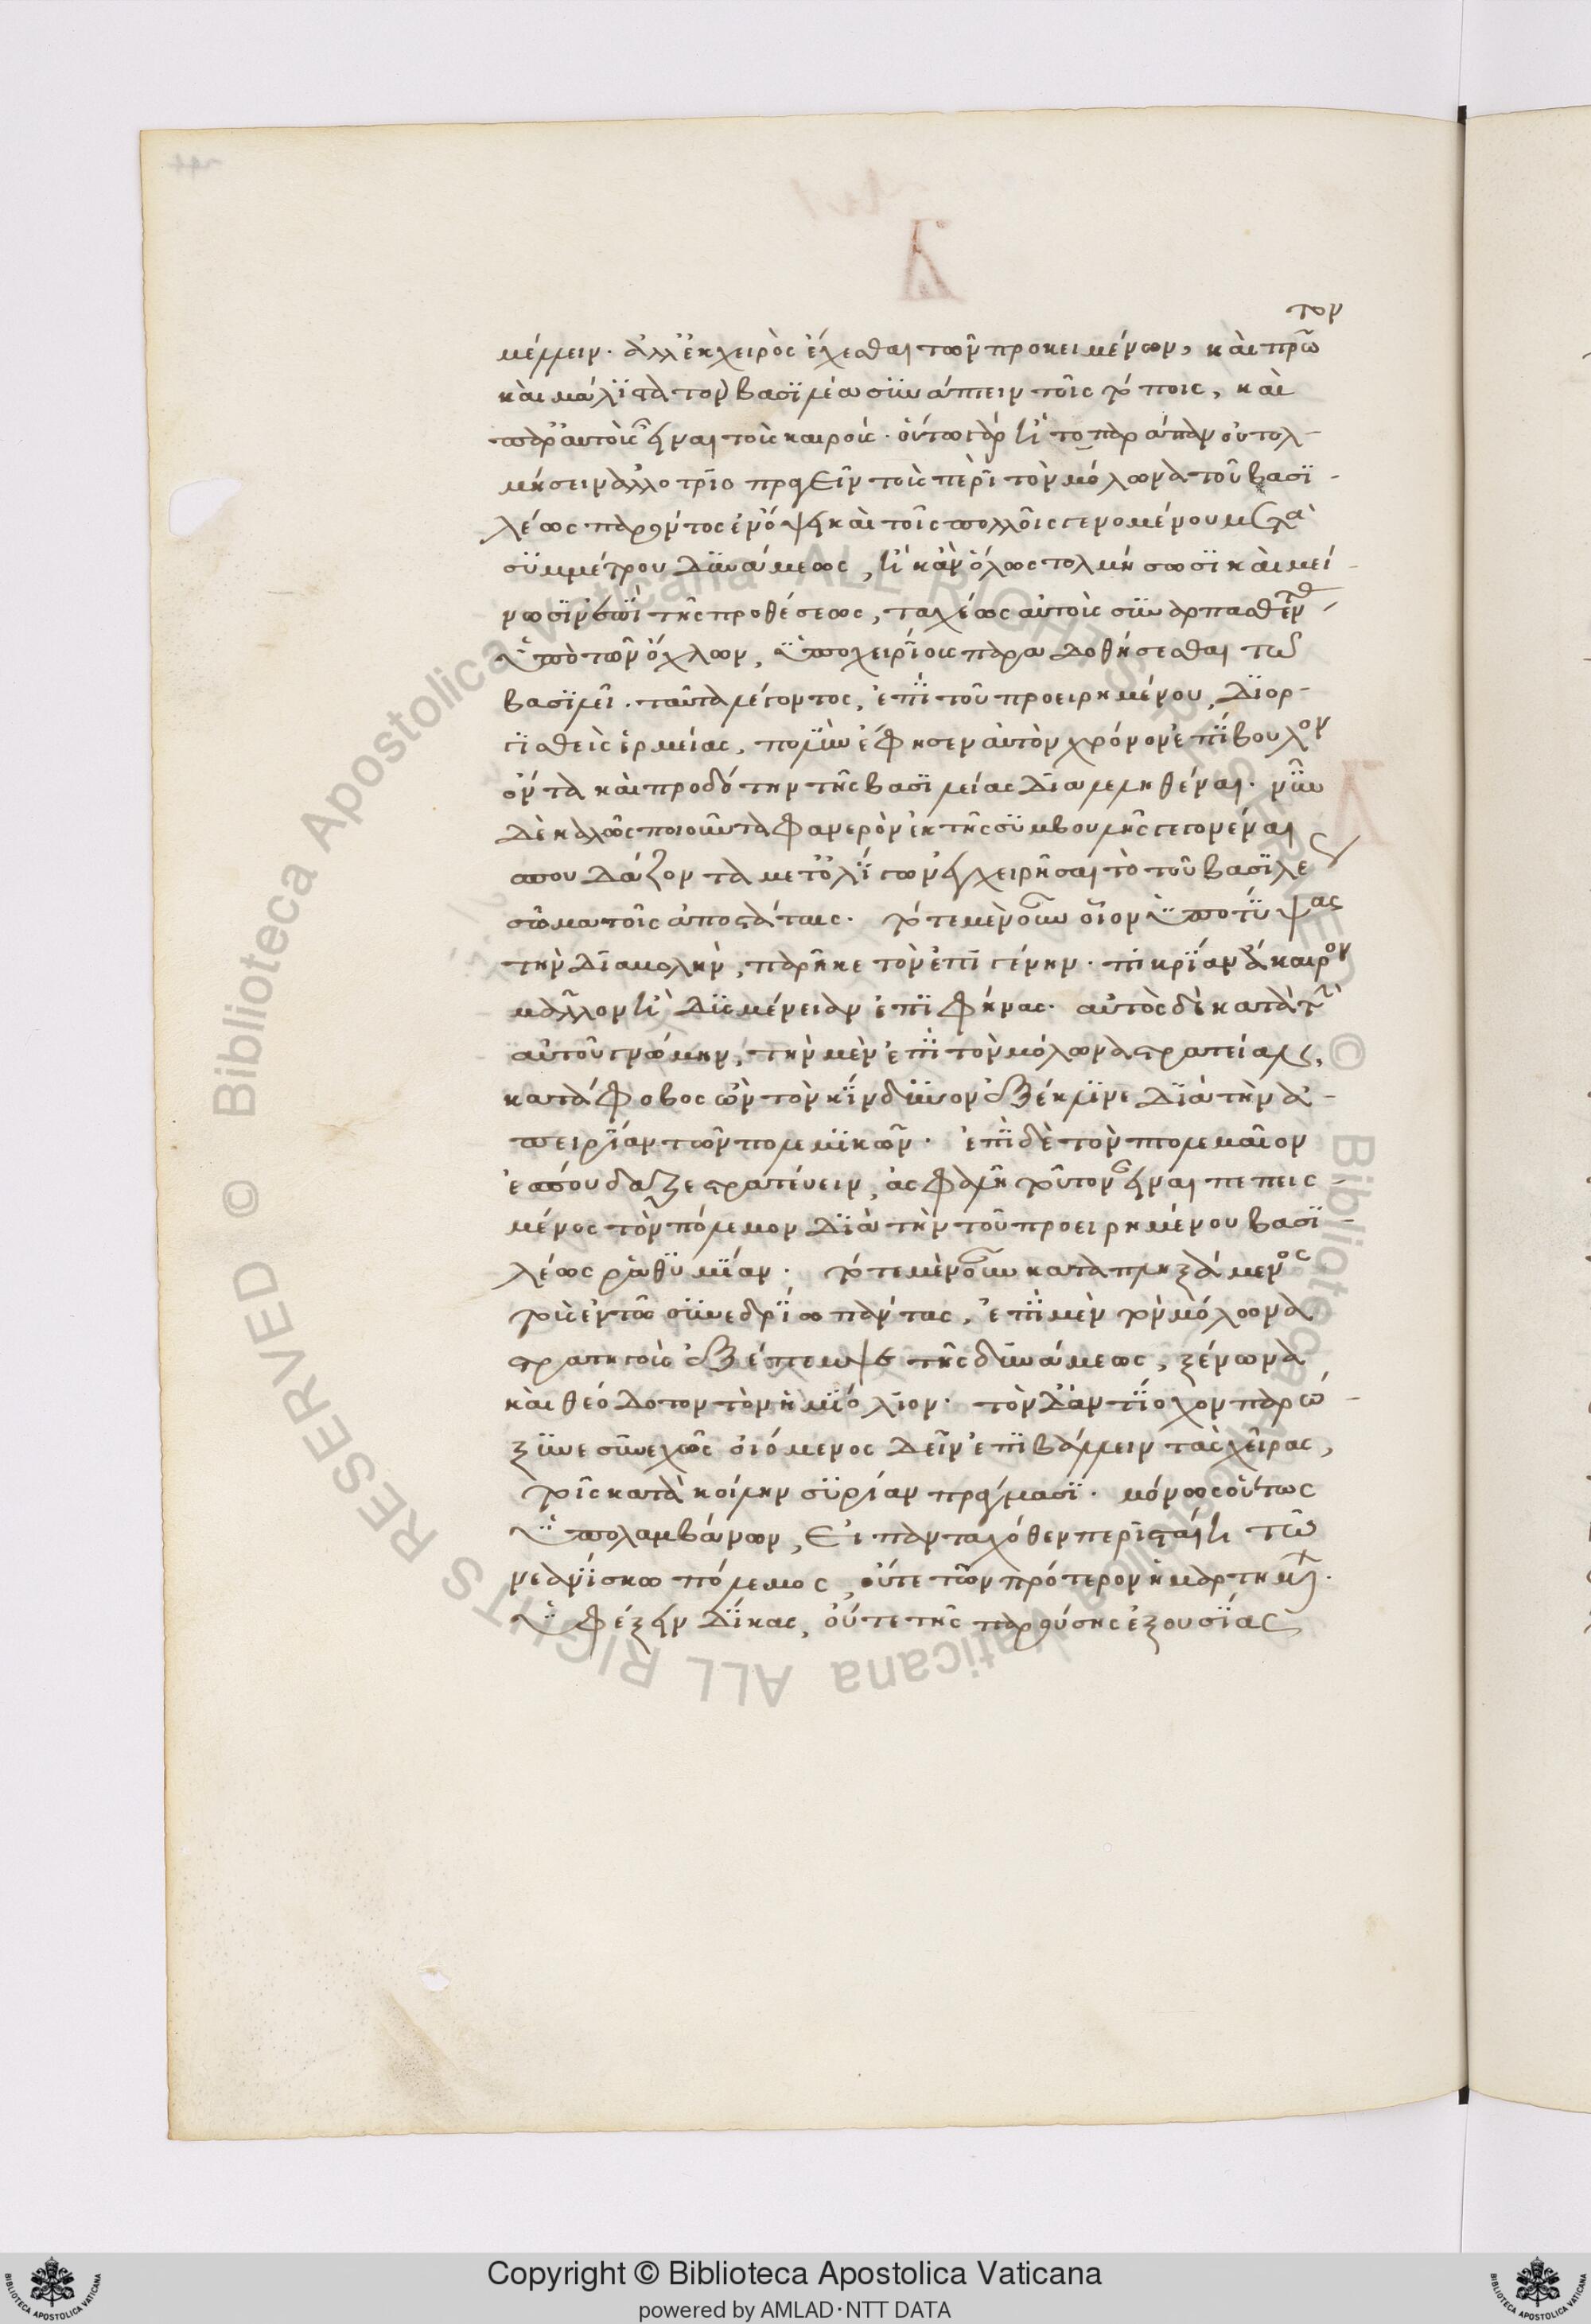 μέλλειν. ἀλλ' ἐκ χειρὸς ἔχεσθαι τῶν προκειμένων, καὶ πρῶτον
καὶ μάλιστα τὸν βασιλέα συνάπτειν τοῖς τόποις, καὶ
παρ' αὐτοὺς εἶναι τοὺς καιρούς. οὕτω γὰρ ἢ τὸ παράπαν οὐ τολ-
μήσειν ἀλλοτριοπραγεῖν τοὺς περὶ τὸν μόλωνα τοῦ βασι-
λέως παρόντος ἐν ὄψει καὶ τοῖς πολλοῖς γενομένου μετὰ
συμμέτρου δυνάμεως, ἢ κἂν ὅλως τολμήσωσι καὶ μεί-
νωσιν ἐπὶ τῆς προθέσεως, ταχέως αὐτοὺς συναρπασθέντας
ὑπὸ τῶν ὄχλων, ὑποχειρίους παραδοθήσεσθαι τῷ
βασιλεῖ. ταῦτα λέγοντος, ἔτι τοῦ προειρημένου, διορ-
γισθεὶς ἑρμείας, πολὺν ἔφησεν αὐτὸν χρόνον ἐπίβουλον
ὄντα καὶ προδότην τῆς βασιλείας διαλεληθέναι. νῦν
δὲ καλῶς ποιοῦντα φανερὸν ἐκ τῆς συμβουλῆς γεγονέναι
σπουδάζοντα μετ' ὀλίγων ἐγχειρῆσαι τὸ τοῦ βασιλέως
σῶμα τοῖς ἀποστάταις. τότε μὲν οὖν οἷον ὑποτύψας
τὴν διαβολὴν, παρῆκε τὸν ἐπιγένην. πικρίαν ἄκαιρον
μᾶλλον ἢ δυσμένειαν ἐπιφήνας. αὐτὸς δὲ κατὰ τὴν
αὑτοῦ γνώμην, τὴν μὲν ἐπὶ τὸν μόλωνα στρατείαν,
κατάφοβος ὢν τὸν κίνδυνον ἐξέκλινε διὰ τὴν ἀ-
πειρίαν τῶν πολεμικῶν. ἐπὶ δὲ τὸν πτολεμαῖον
ἐσπούδαζε στρατεύειν, ἀσφαλῆ τοῦτον εἶναι πεπεισ-
μένος τὸν πόλεμον διὰ τὴν τοῦ προειρημένου βασι-
λέως ῥᾳθυμίαν. τότε μὲν οὖν καταπληξάμενος
τοὺς ἐν τῷ συνεδρίῳ πάντας, ἐπὶ μὲν τὸν μόλωνα
στρατηγοὺς ἐξέπεμψε τῆς δυνάμεως, ξένωνα
καὶ θεόδοτον τὸν ἡμιόλιον. τὸν δ' ἀντίοχον παρώ-
ξυνε συνεχῶς οἰόμενος δεῖν ἐπιβάλλειν τὰς χεῖρας,
τοῖς κατὰ κοίλην συρίαν πράγμασι. μόνως οὕτως
ὑπολαμβάνων, εἰ πανταχόθεν περισταίη τῷ
νεανίσκῳ πόλεμος, οὔτε τῶν πρότερον ἡμαρτημένων
ὑφέξειν δίκας, οὔτε τῆς παρούσης ἐξουσίας
Copyright © Biblioteca Apostolica Vaticana
powered by AMLAD·NTT DATA